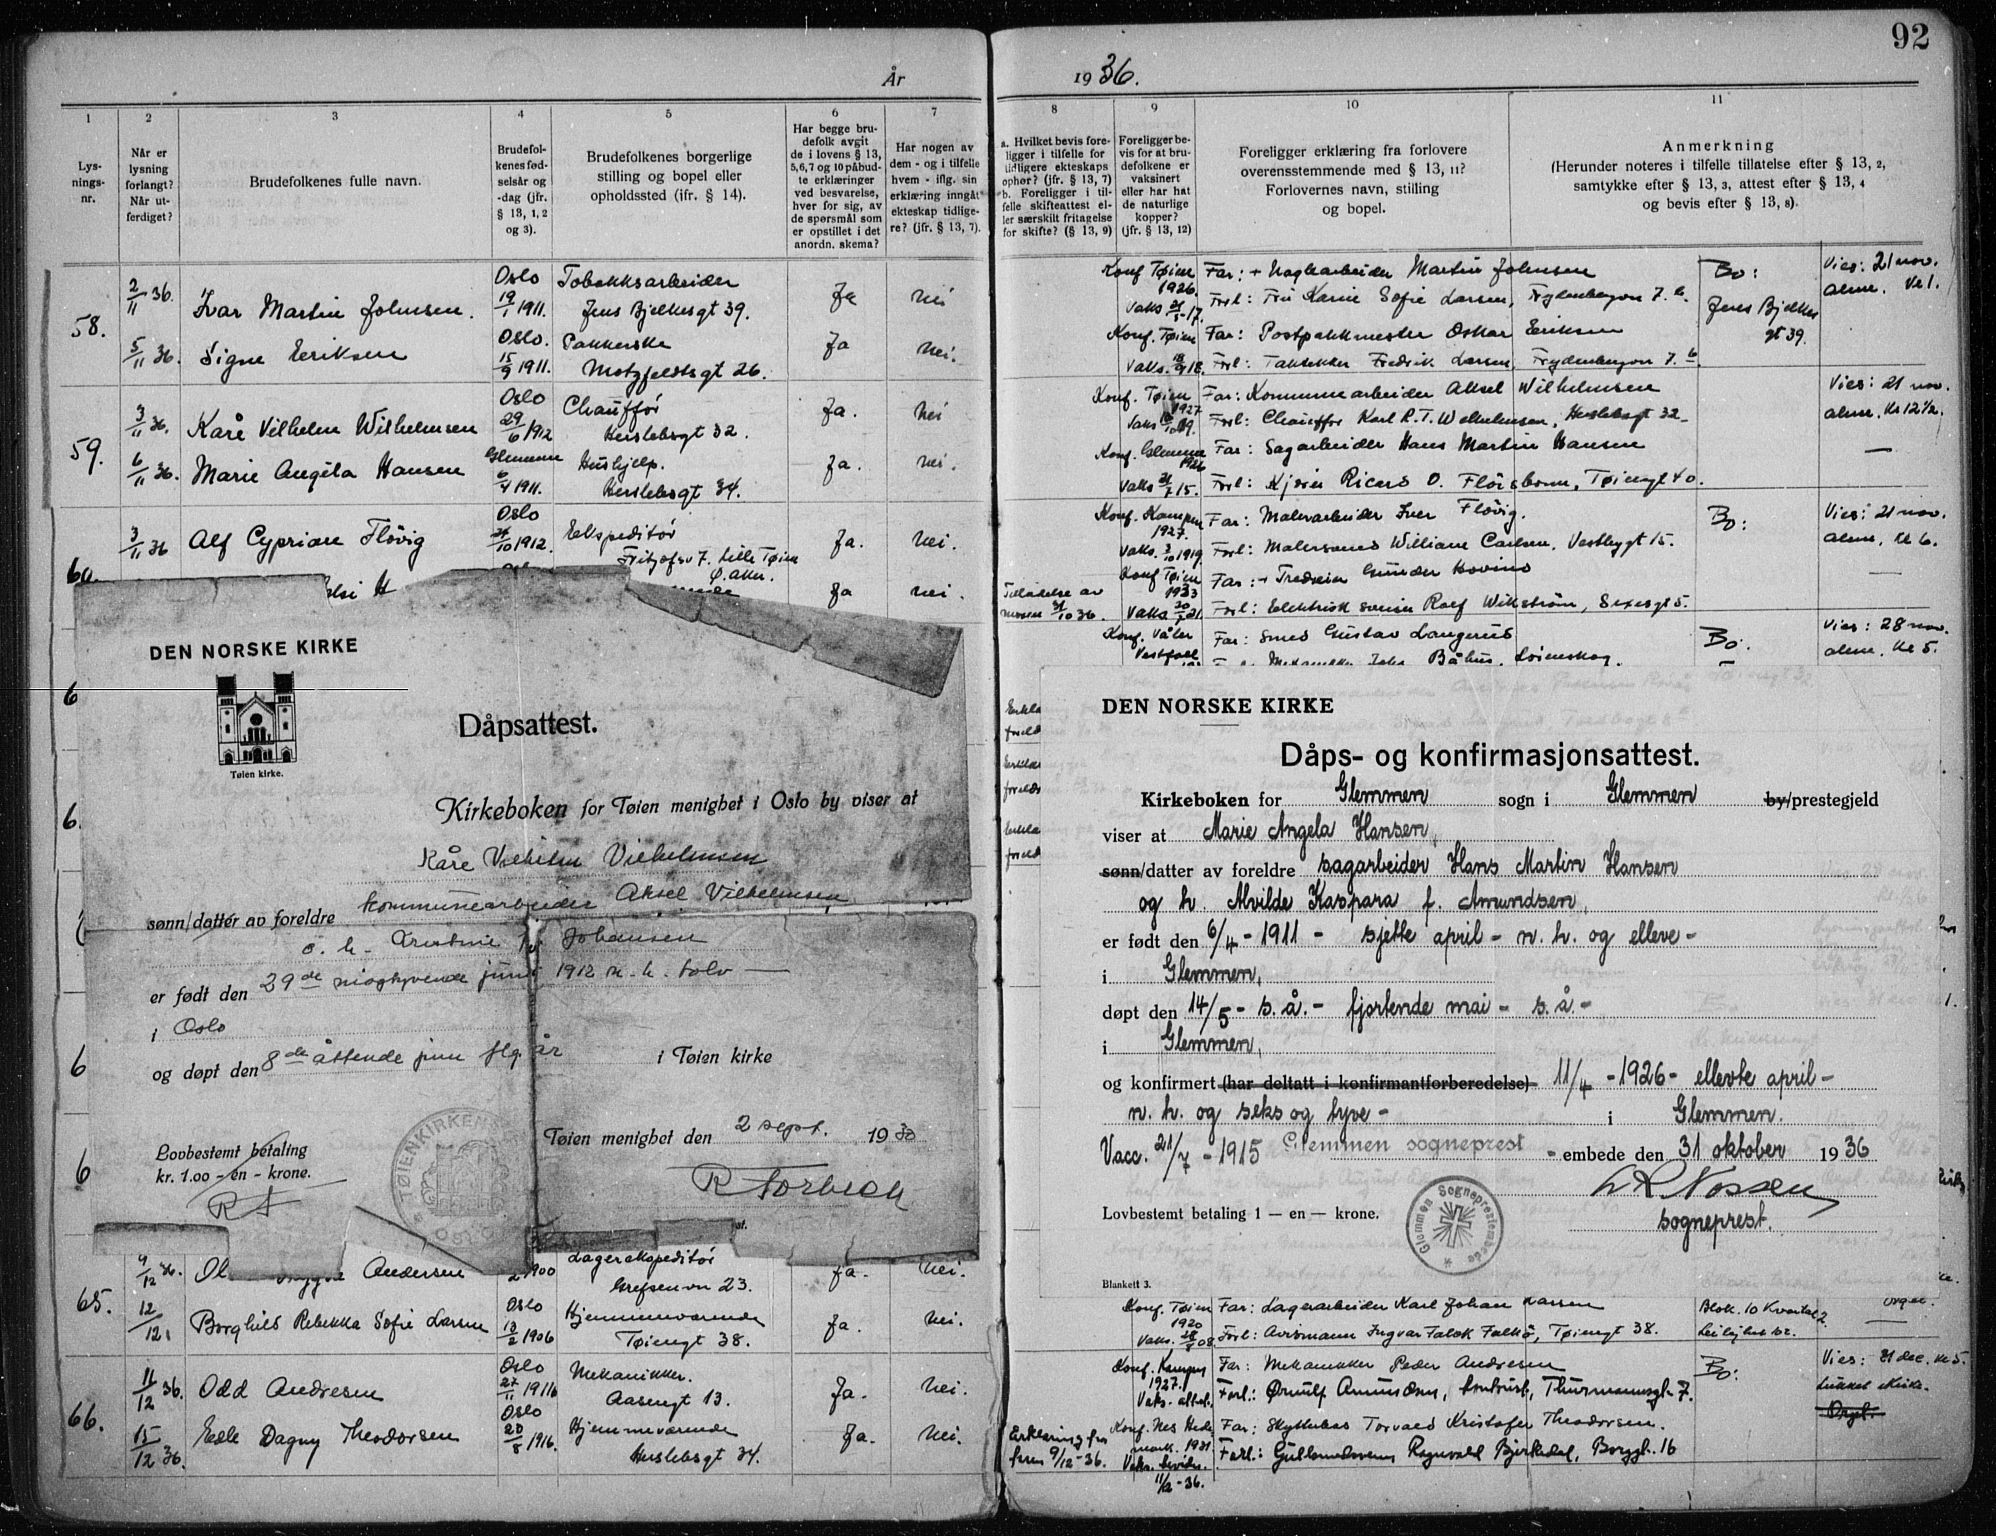 92
År
19 36.
1
2
3
4
5
6
7
8
9
10
11
Lys-
nings-
nr.
Når er
lysning
forlangt?
Når ut-
ferdiget?
Brudefolkenes fulle navn.
Brudefol-
kenes fød-
selsår og
-dag (jfr.
§ 13, 1, 2
og 3).
Brudefolkenes borgerlige
stilling og bopel eller
opholdssted (jfr. § 14).
Har begge bru-
defolk avgit
de i lovens § 13,
5,6,7 og 10 påbud-
te erklæringer
ved besvarelse,
hver for sig, av
de spørsmål som
er opstillet i det
anordn. skema?
Har nogen av
dem - og i tilfelle
hvem - iflg. sin
erklæring inngått
ekteskap tidlige-
re? (jfr. § 13, 7).
a. Hvilket bevis fore-
ligger i tilfelle for
tidligere ekteskaps
ophør? (jfr. § 13, 7)
b. Foreligger i til-
felle skifteattest el-
ler særskilt fritagelse
for skifte? (§ 13, 9)
Foreligger be-
vis for at bru-
defolkene er
vaksinert
eller har hat
de naturlige
kopper?
(jfr. § 13, 12)
Foreligger erklæring fra forlovere
overensstemmende med § 13, 11?
Forlovernes navn, stilling
og bopel.
Anmerkning
(Herunder noteres i tilfelle tillatelse efter § 13, 2,
samtykke efter § 13, 3, attest efter § 13, 4
og bevis efter § 13, 8).
58.
2/11 36.
Ivar Martin Johnsen.
Oslo
19/1 1911.
Tobakksarbeider
Jens Bjelkesgt 39.
Ja
Nei
Konf Tøien
1926.
Vaks
Far: + Maglearbeider Martin Johnsen
Forl: Fru Karin Sofie Larsen, Frydenbergvn 7. b.
Bo:
Jens Bjelkes
gt 39.
Vies: 21 nov.
alm. kl 1.
5/11 36.
Signe Eriksen
Oslo.
15/9 1911.
Pakkerske
Motzfeldtsgt 26.
Ja
Nei.
Konf. Tøien
Far: Postpakkmester Oskar Eriksen
Forl: Taktekker Fredrik Larsen, Frydenbergvn 7. b
59.
3/11 36.
Kåre Vilhelm Wilhelmsen
Oslo
29/6 1912
Chauffør
Herslebsgt 32.
Ja.
Nei
Konf. Tøien
1927
Far: Kommunearbeider Aksel Wilhelmsen
Forl: Chauffør Karl R. T. Wilhelmsen, Herslebsgt 32
Vies: 21 nov.
alm. kl 12 1/2.
6/11 36.
Marie Angela Hansen
Glemmen
6/4 1911.
Hushjelp.
Herslebsgt 34.
Ja.
Nei.
Konf. Glemmen
1926
Vaks 21/7 15.
Far: Sagarbeider Hans Martin Hansen
Forl: Kjører Ricard O. Fløisbonn, Tøiengt 40.
60.
3/11 36
Alf Cyprian Fløvig
Oslo
1912.
Ekspeditør
Fritjofsv 7. Lille Tøien
Ø. Aker.
Ja.
Nei.
Konf. Kampen
1927.
Vaks. 3/10 1919.
Far: Malerarbeider Iver Fløvig.
Forl: Malersvend William Carlsen, Vestbygt 15.
Bo:
Vies: 21 nov.
alm. kl 6.
Ja
Nei.
Tilladelse av
31/10 36.
Konf Tøien
1933
Far: + Tredreier Gunder Hovind
Forl: Elektrisk svein Rolf Wikstrøm, Sexesgt 5.
Konf. Våler
Vestfoll
Far: Smed Gustav Langerud
Bo:
Vies: 28 nov.
alm. kl 5.
DEN NORSKE KIRKE
Tøien kirke.
Dåpsattest.
Kirkeboken for Tøien menighet i Oslo by viser at
Kåre Vilhelm Vilhelmsen
sønn/datter av foreldre kommunearbeider Aksel Vilhelmsen
o. h. Johansen
er født den 29de niogtyvende juni 1912 n. h. tolv
i Oslo
og døpt den 8de åttende juni flg. år i Tøien kirke
Lovbestemt betaling
kr. 1.00 - en - krone.
Tøien menighet den 2 sept. 1930
TØIENKIRKEN
OSLO
DEN NORSKE KIRKE
Dåps- og konfirmasjonsattest.
Kirkeboken for Glemmen sogn i Glemmen by/prestegjeld
viser at Marie Angela Hansen,
sønn/datter av foreldre sagarbeider Hans Martin Hansen
og h. Alvilde Kaspara f. Amundsen,
er født den 6/4 - 1911 - sjette april - n. h. og elleve -
i Glemmen,
døpt den 14/5 - s. å. - fjortende mai - s. å. -
i Glemmen,
og konfirmert (har deltatt i konfirmantforberedelse) 11/4 - 1926 - ellevte april -
n. h. og seks og tyve - i Glemmen.
Vacc. 21/7 - 1915 Glemmen sogneprest - embede den 31 oktober 1936
Nossen
sogneprest.
Lovbestemt betaling 1 — en — krone.
Glemmen Sogneprestembede
Blankett 3.
65.
9/12 36.
Andersen
1900
Lagerekspeditør
Grefsenvn 23.
Ja.
Nei.
12/12
Borghild Rebekka Sofie Larsen
Oslo
13/2 1906
Hjemmeværende
Tøiengt 38.
Ja.
Nei.
Konf. Tøien
1920
Far: Lagerarbeider Karl Johan Larsen
Forl: Avismann Ingvar Falck Falkø, Tøiengt 38.
Blok. 10 Kvartal 2.
Leilighet 62.
66.
11/12 36.
Odd Andresen
Oslo
27/11 1911
Mekanikker.
Aasengt 13.
Ja.
Nei.
Konf. Kampen
1927.
Vaks. attest.
Far: Mekanikker Peder Andresen
Forl: Ørnulf Amundsen, Thurmannsgt 7.
Bo:
Vies: 31 dec. kl 5.
Lukket kirke.
Orgel.
15/12 36.
Edle Dagny Theodorsen
Oslo
20/8 1916.
Hjemmeværende
Herslebsgt 34.
Ja.
Nei.
Erklæring fra
9/12 - 36.
Konf. Nes Hede
mark. 1931
11/12 - 36.
Far: Skytterbas Torvald Kristofer Theodorsen.
Forl.: Gullsmedsvenn Ragnvald Bjerkedal, Borggt. 16